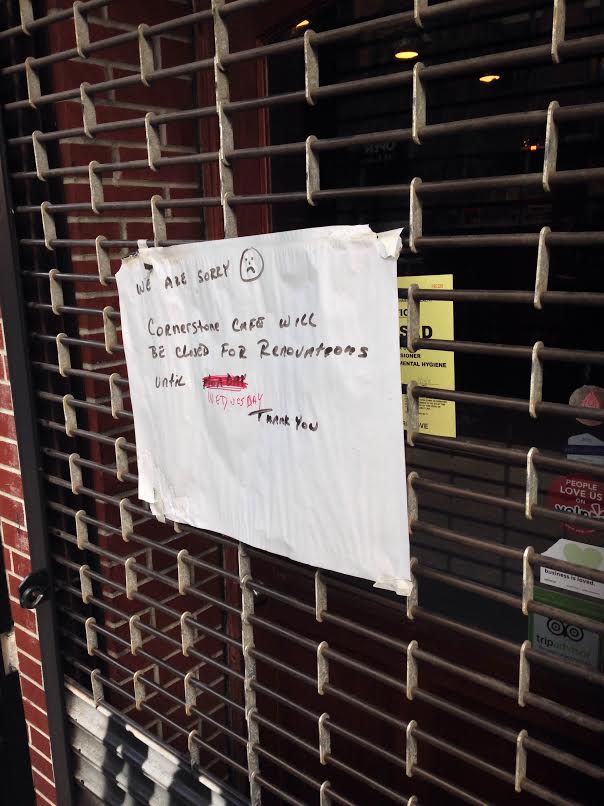 WE ARE SORRY
CORNERSTONE CAFE WILL
BE CLOSED FOR RENOVATIONS
UNTIL
WEDNESDAY
THANK YOU
SIONER
MENTAL HYGIENE
PEOPLE
LOVE US
ON
yelp
business is loved.
tripadvisor
OPEN